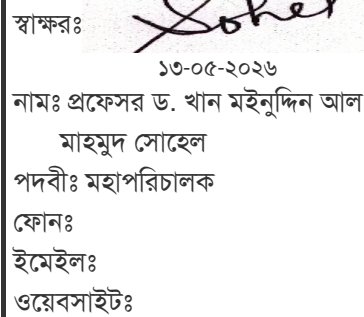 স্বাক্ষরঃ
Sohel
১৩-০৫-২০২৬
নামঃ প্রফেসর ড. খান মইনুদ্দিন আল
মাহমুদ সোহেল
পদবীঃ মহাপরিচালক
ফোনঃ
ইমেইলঃ
ওয়েবসাইটঃ